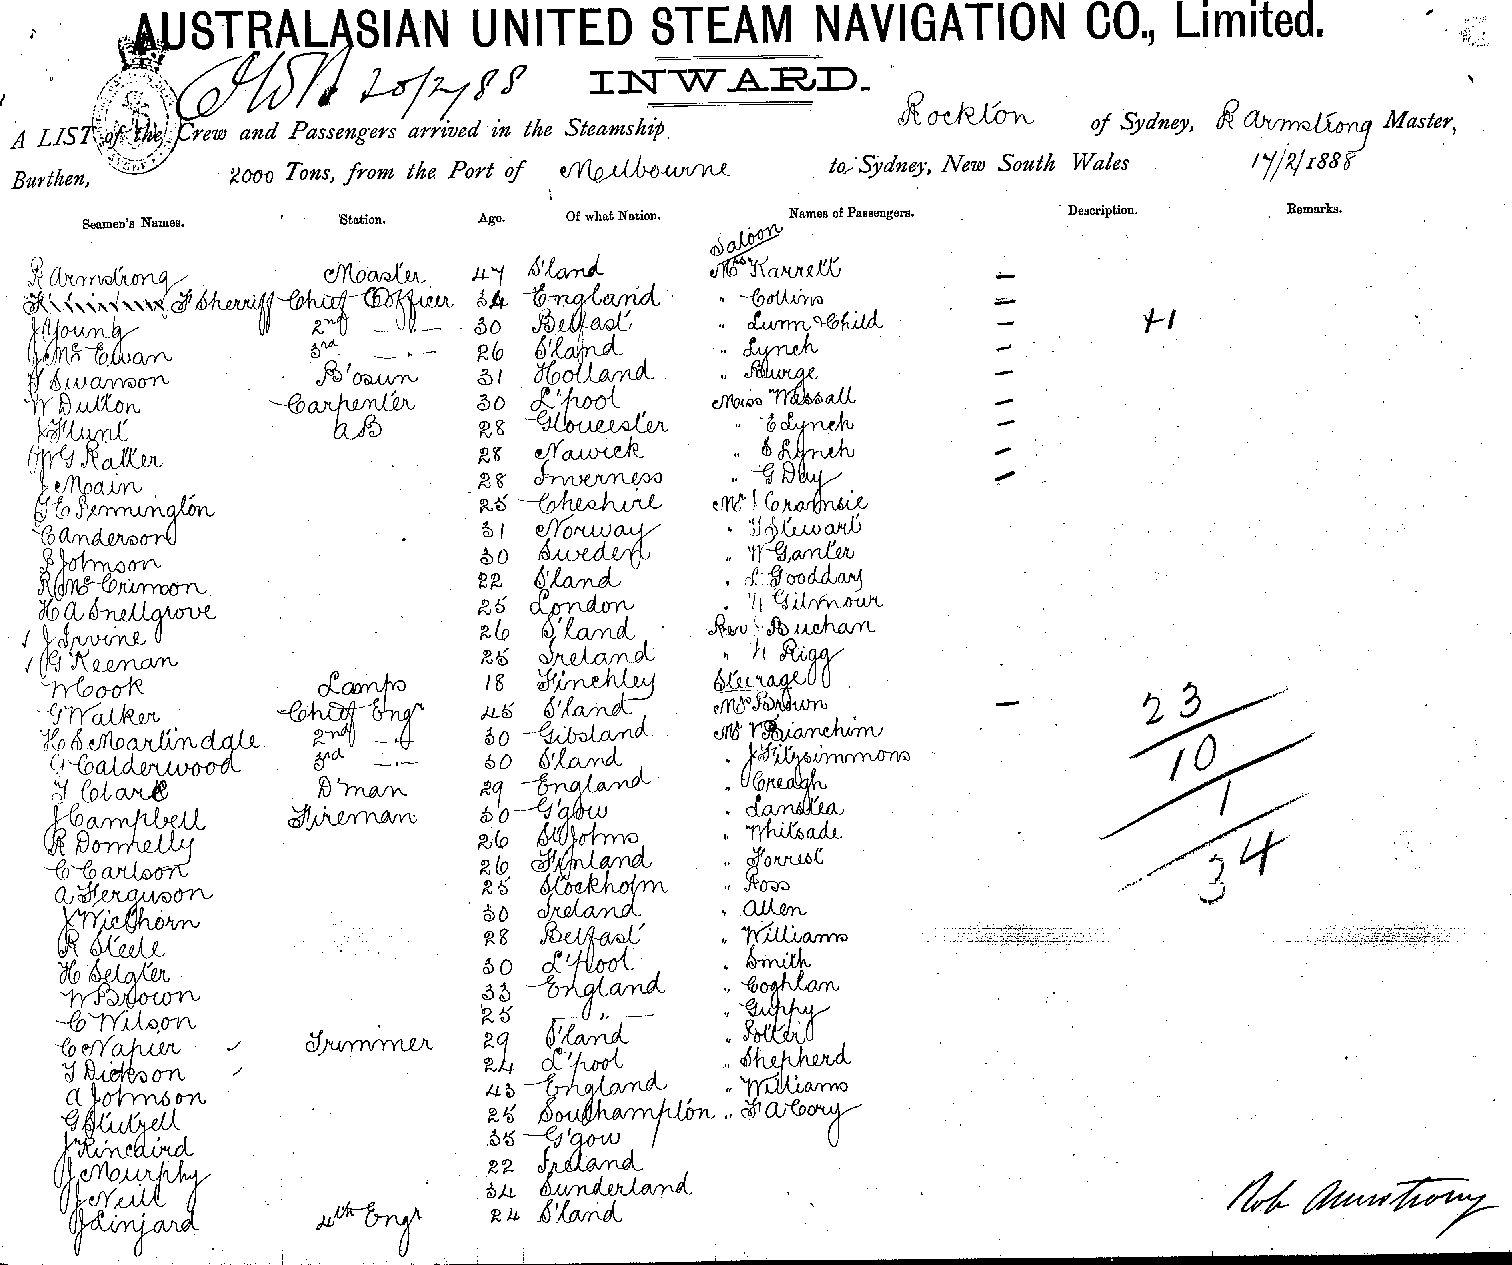 AUSTRALASIAN UNITED STEAM NAVIGATION CO., Limited.
20/2/88 INWARD.
A LIST of the Crew and Passengers arrived in the Steamship Rockton of Sydney, R Armstrong Master,
Burthen, 2000 Tons, from the Port of Melbourne to Sydney, New South Wales 17/2/1888
Seamen's Names. Station. Age. Of what Nation. Names of Passengers. Description. Remarks.
Saloon
R Armstrong Master 47 S'land Mrs Karrett —
F Sherriff Chief Officer 34 England " Collins —
J Young 2nd — " — 30 Belfast " Lunn & Child — +1
J McEwan 3rd — " — 26 S'land " Lynch —
Swanson B'osun 31 Holland " Burge —
W Dutton Carpenter 30 L'pool Miss Wassall —
J Flunt AB 28 Gloucester " E Lynch —
W G Ratter 28 Nawick " S Lynch —
J Main 28 Inverness " G Day —
G E Pennington 25 Cheshire Mr J Cramsie
C Anderson 31 Norway " T Stewart
P Johnson 30 Sweden " W Ganter
R McCrimon 22 S'land " L Gooddays
H A Snellgrove 25 London " H Gilmour
J Irvine 26 S'land Rev J Buchan
G Keenan 25 Ireland " H Rigg
W Cook Lamps 18 Finchley Steerage
G Walker Chief Engr 45 S'land Mrs Brown — 23
H S Martindale 2nd — " 30 Gibsland Mr V Bianchini 10
G Calderwood 3rd — " — 30 S'land " J Fitzsimmons
T Clark D'man 29 England " Creagh 1
J Campbell Fireman 30 G'gow " Lanskea
R Donnelly 26 St Johns " Whitsade 34
C Carlson 26 Finland " Forrest
A Ferguson 25 Stockholm " Ross
J Wichhorn 30 Ireland " Allen
R Steele 28 Belfast " Williams
H Selgter 30 L'pool " Smith
W Brown 33 England " Coghlan
C Wilson 25 — " — " Guppy
C Napier Trimmer 29 S'land " Potter
T Dickson 24 L'pool " Shepherd
A Johnson 43 England " Williams
G Stutzell 25 Southampton " F A Cory
J Kincaird 35 G'gow
J Murphy 22 Ireland
J Neill 34 Sunderland
J Linjard 4th Engr 24 S'land
Rob Armstrong